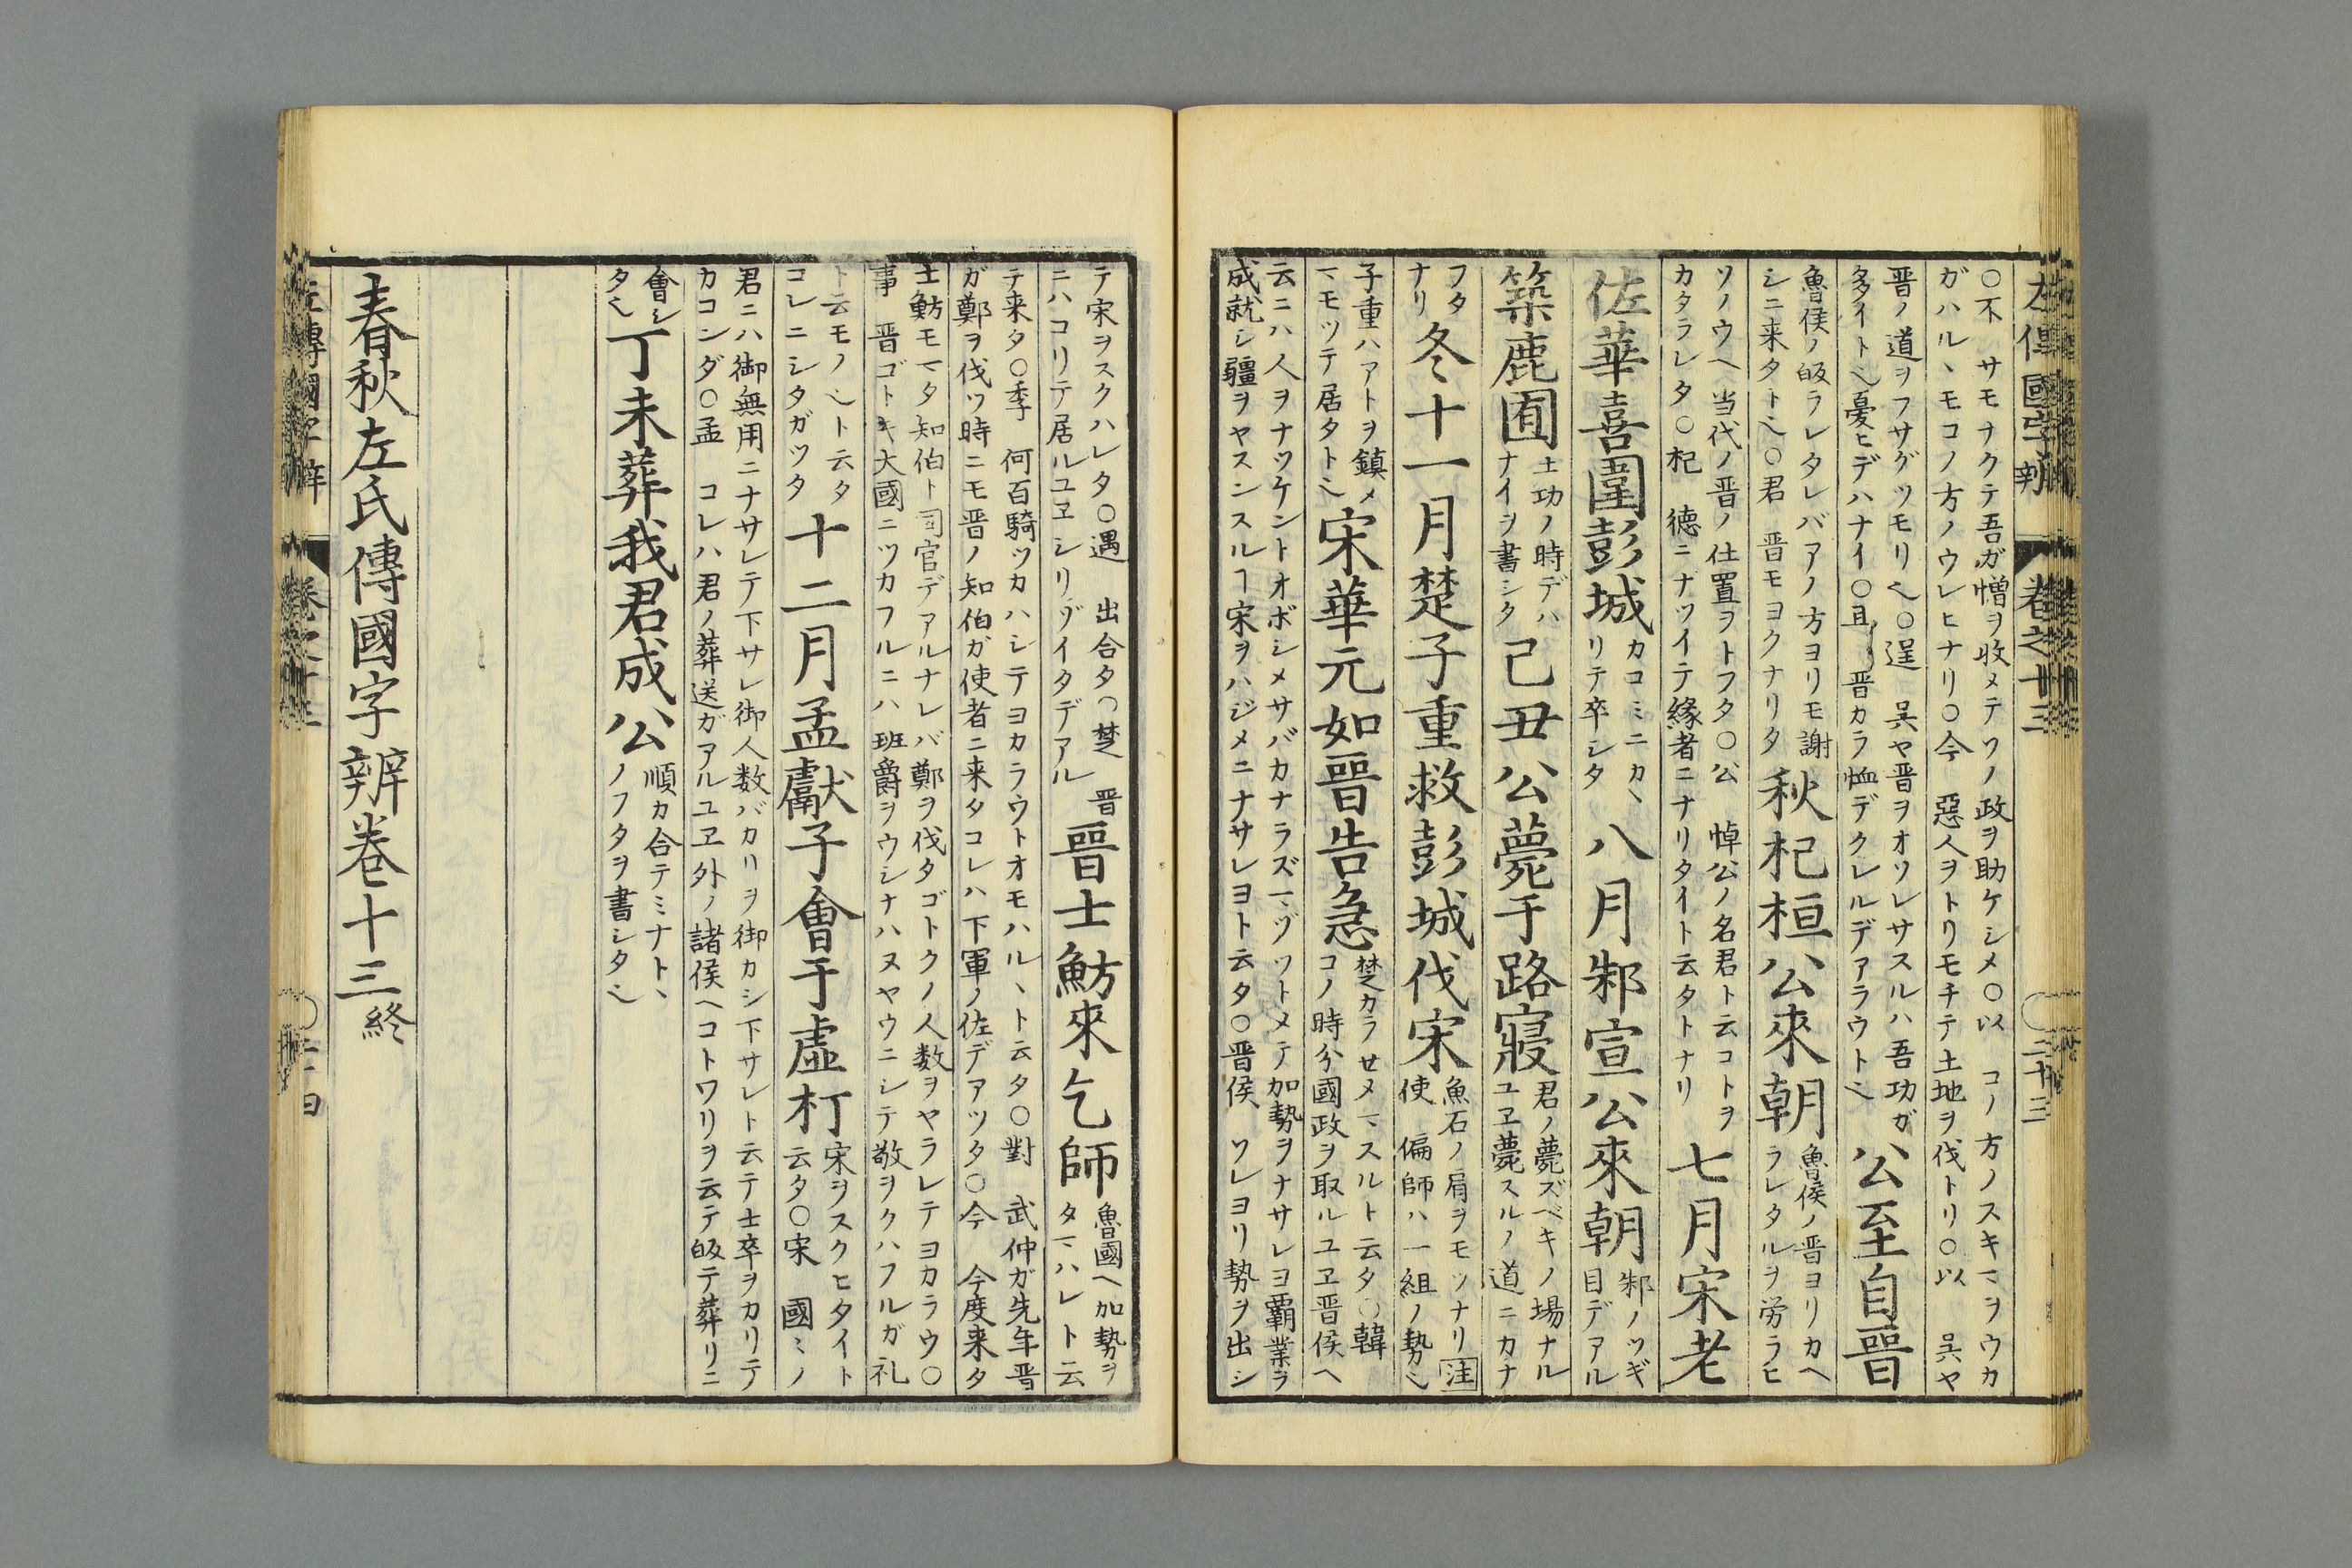 左傳國字辨 卷之十三 二十三
○不 サモナクテ吾ガ憎ヲ收メテワノ政ヲ助ケシメ○以 コノ方ノスキマヲウカ
ガハルヽモコノ方ノウレヒナリ○今 惡人ヲトリモチテ土地ヲ伐トリ○以 呉ヤ
晋ノ道ヲフサグツモリ乀○逞 呉ヤ晋ヲオソレサスルハ吾功ガ
多イト乀憂ヒデハナイ○且 晋カラ恤デクレルデアラウト乀
公至自晉
魯侯ノ皈ラレタレバアノ方ヨリモ謝
シニ来タト乀○君 晋モヨクナリタ
秋杞桓公來朝
魯侯ノ晋ヨリカヘ
ラレタルヲ労ラヒ
ソノウヘ当代ノ晋ノ仕置ヲトフタ○公 悼公ノ名君ト云コトヲ
カタラレタ○杞 徳ニナツイテ縁者ニナリタイト云タトナリ
七月宋老
佐華喜圍彭城
カコミニカヽ
リテ卒シタ
八月邾宣公來朝
邾ノツギ
目デアル
築鹿囿
土功ノ時デハ
ナイヲ書シタ
己丑公薨于路寢
君ノ薨ズベキノ場ナル
ユヱ薨スルノ道ニカナ
フタ
ナリ
冬十一月楚子重救彭城伐宋
魚石ノ肩ヲモツナリ注
使 偏師ハ一組ノ勢乀
子重ハアトヲ鎮メ
マモツテ居タト乀
宋華元如晉告急
楚カラせメマスルト云タ○韓
コノ時分國政ヲ取ルユヱ晋侯ヘ
云ニハ人ヲナツケントオボシメサバカナラズマヅツトメテ加勢ヲナサレヨ覇業ヲ
成就シ疆ヲヤスンスルヿ宋ヲハジメニナサレヨト云タ○晋侯 ソレヨリ勢ヲ出シ
テ宋ヲスクハレタ○遇 出合タ○楚 晋
ニハコリテ居ルユヱシリゾイタデアル
晉士魴來乞師
魯國ヘ加勢ヲ
タマハレト云
テ来タ○季 何百騎ツカハシテヨカラウトオモハルヽト云タ○對 武仲ガ先年晋
ガ鄭ヲ伐ツ時ニモ晋ノ知伯ガ使者ニ来タコレハ下軍ノ佐デアツタ○今 今度来タ
士魴モマタ知伯ト司官デアルナレバ鄭ヲ伐タゴトクノ人数ヲヤラレテヨカラウ○
事 晋ゴトキ大國ニツカフルニハ班爵ヲウシナハヌヤウニシテ敬ヲクハフルガ礼
ト云モノ乀ト云タ
コレニシタガツタ
十二月孟獻子會于虛朾
宋ヲスクヒタイト
云タ○宋 國ミノ
君ニハ御無用ニナサレテ下サレ御人数バカリヲ御カシ下サレト云テ士卒ヲカリテ
カコンダ○孟 コレハ君ノ葬送ガアルユヱ外ノ諸侯ヘコトワリヲ云テ皈テ葬リニ
會シ
タ乀
丁未葬我君成公
順カ合テミナトヽ
ノフタヲ書シタ乀
春秋左氏傳國字辨卷十三終